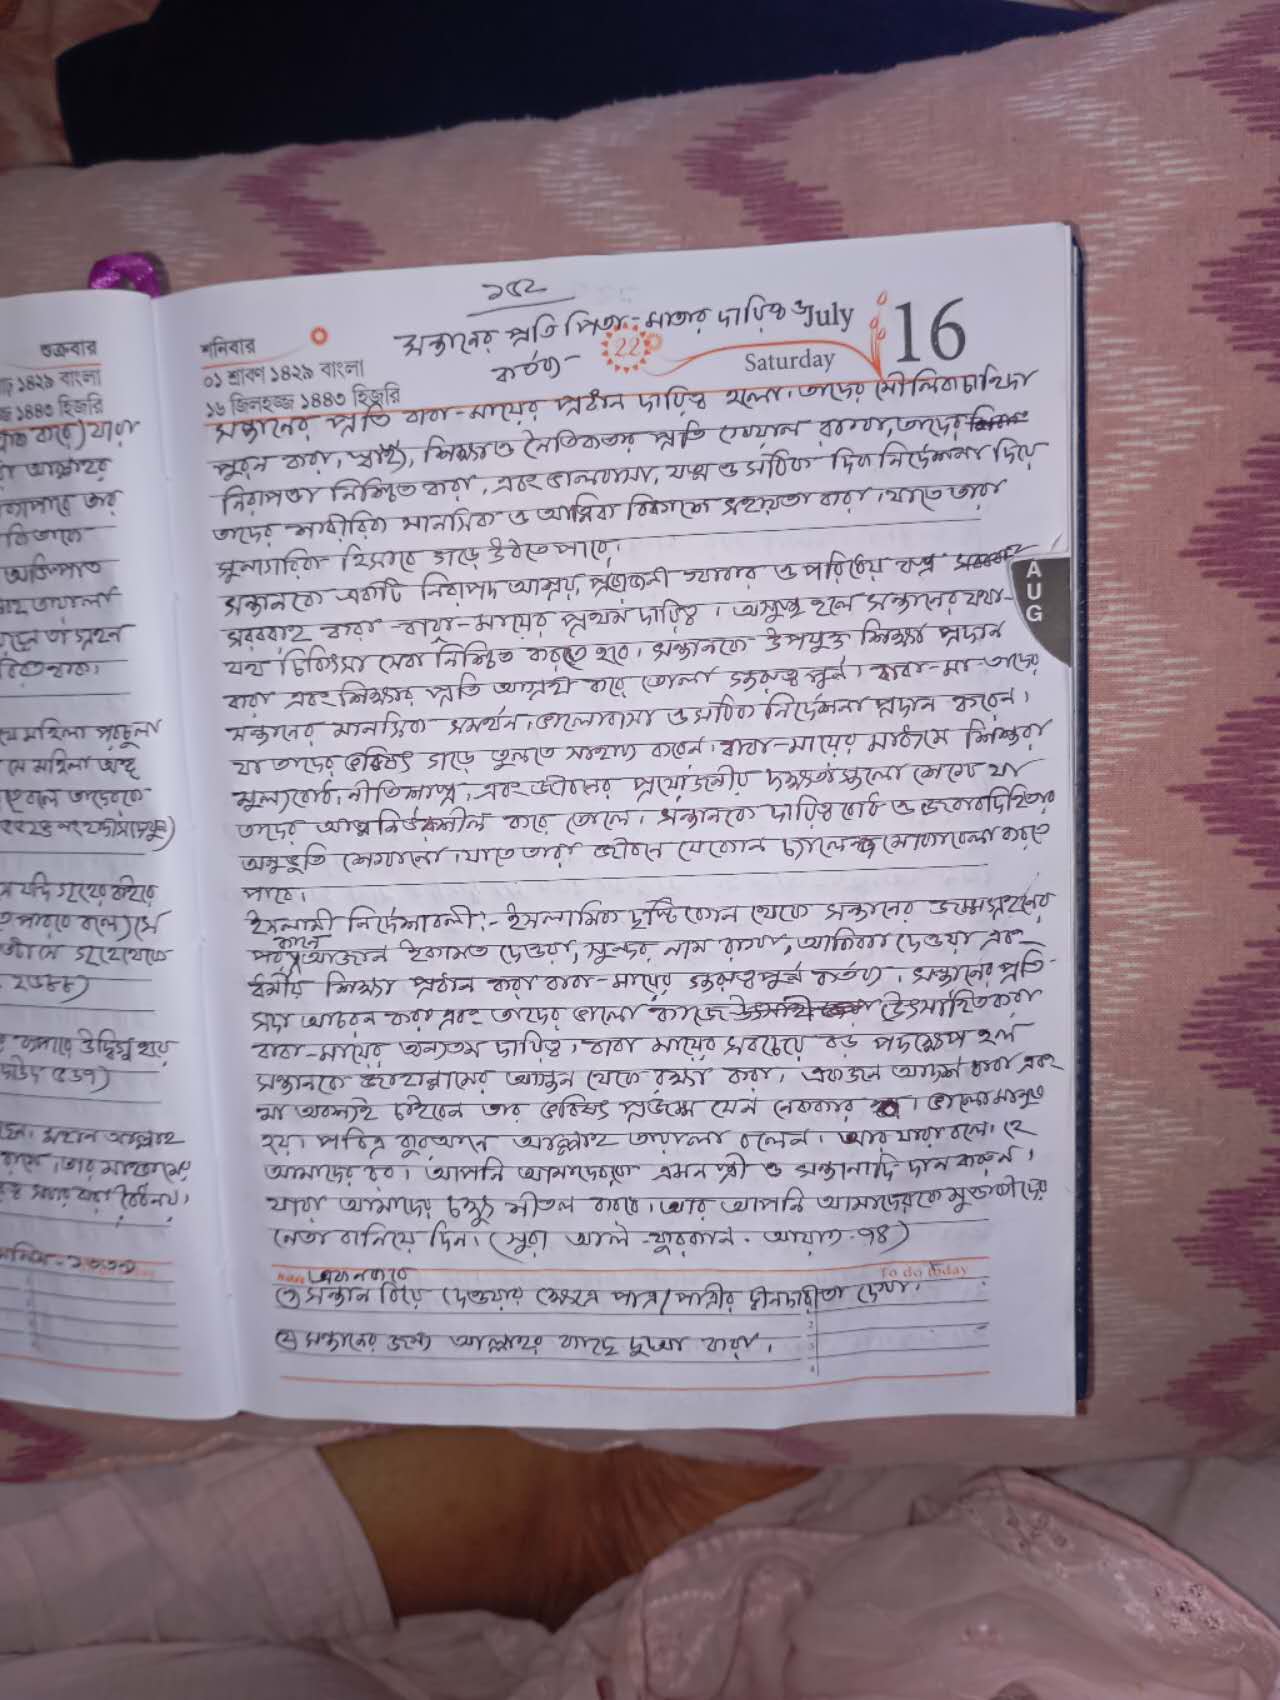 শুক্রবার
১৪২৯ বাংলা
১৪৪৩ হিজরি
করে) যারা
আল্লাহর
ব্যাপারে তার
১৫২
সন্তানের প্রতি পিতা-মাতার দায়িত্ব ও
কর্তব্য-
July 16
22
Saturday
শনিবার
০১ শ্রাবণ ১৪২৯ বাংলা
১৬ জিলহজ্জ ১৪৪৩ হিজরি
সন্তানের প্রতি বাবা-মায়ের প্রধান দায়িত্ব হলো। তাদের মৌলিক চাহিদা
পুরন করা, স্বাস্থ্য, শিক্ষা ও নৈতিকতার প্রতি খেয়াল রাখা, তাদের
নিরাপত্তা নিশ্চিত করা, এবং ভালবাসা, যত্ন ও সঠিক দিক নির্দেশনা দিয়ে
তাদের শারীরিক মানসিক ও আত্মিক বিকাশে সহায়তা করা। যাতে তারা
সুনাগরিক হিসাবে গড়ে উঠতে পারে।
সন্তানকে একটি নিরাপদ আশ্রয়, প্রয়োজনী খাবার ও পরিধেয় বস্ত্র
সরবরাহ করা-বাবা-মায়ের প্রথম দায়িত্ব। অসুস্থ হলে সন্তানের যথা-
যথ চিকিৎসা সেবা নিশ্চিত করতে হবে। সন্তানকে উপযুক্ত শিক্ষা প্রদান
করা এবং শিক্ষার প্রতি আগ্রহী করে তোলা গুরুত্বপূর্ন। বাবা-মা-তাদের
সন্তানের মানসিক সমর্থন। ভালোবাসা ও সঠিক নির্দেশনা প্রদান করেন।
যা তাদের ভবিষ্যৎ গড়ে তুলতে সাহায্য করেন। বাবা-মায়ের মাধ্যমে শিশুরা
মূল্যবোধ, নীতিশাস্ত্র, এবং জীবনের প্রয়োজনীয় দক্ষতাগুলো শেখে যা
তাদের আত্মনির্ভরশীল করে তোলে। সন্তানকে দায়িত্ব বোধ ও জবাবদিহিতার
অনুভূতি শেখানো। যাতে তারা জীবনে যেকোন চ্যালেন্জ মোকাবেলা করতে
পারে।
ইসলামী নির্দেশাবলী:- ইসলামিক দৃষ্টি কোন থেকে সন্তানের জন্মগ্রহনের
পর কানে আজান ইকামত দেওয়া, সুন্দর নাম রাখা, আকিকা দেওয়া এবং
ধর্মীয় শিক্ষা প্রধান করা বাবা-মায়ের গুরুত্বপূর্ন কর্তব্য। সন্তানের প্রতি-
সদা আচরন করা এবং তাদের ভালো কাজে উৎসাহিত করা
বাবা-মায়ের অন্যতম দায়িত্ব। বাবা মায়ের সবচেয়ে বড় পদক্ষেপ হল
সন্তানকে জাহান্নামের আগুন থেকে রক্ষা করা। একজন আদর্শ বাবা এবং
মা অবশ্যই চাইবেন তার ভবিষ্যৎ প্রজন্ম যেন নেককার। ভালো মানুষ
হয়। পবিত্র কুরআনে আল্লাহ তায়ালা বলেন। আর যারা বলে। হে
আমাদের রব। আপনি আমাদেরকে এমন স্ত্রী ও সন্তানাদি দান করুন।
যারা আমাদের চক্ষু শীতল করবে। আর আপনি আমাদেরকে মুত্তাকীদের
নেতা বানিয়ে দিন। (সুরা আল-ফুরকান- আয়াত-৭৪)
To do today
সন্তান বিয়ে দেওয়ার ক্ষেত্রে পাত্র/পাত্রীর দ্বীনদারীতা দেখা।
সন্তানের জন্য আল্লাহর কাছে দুআ করা।
AUG